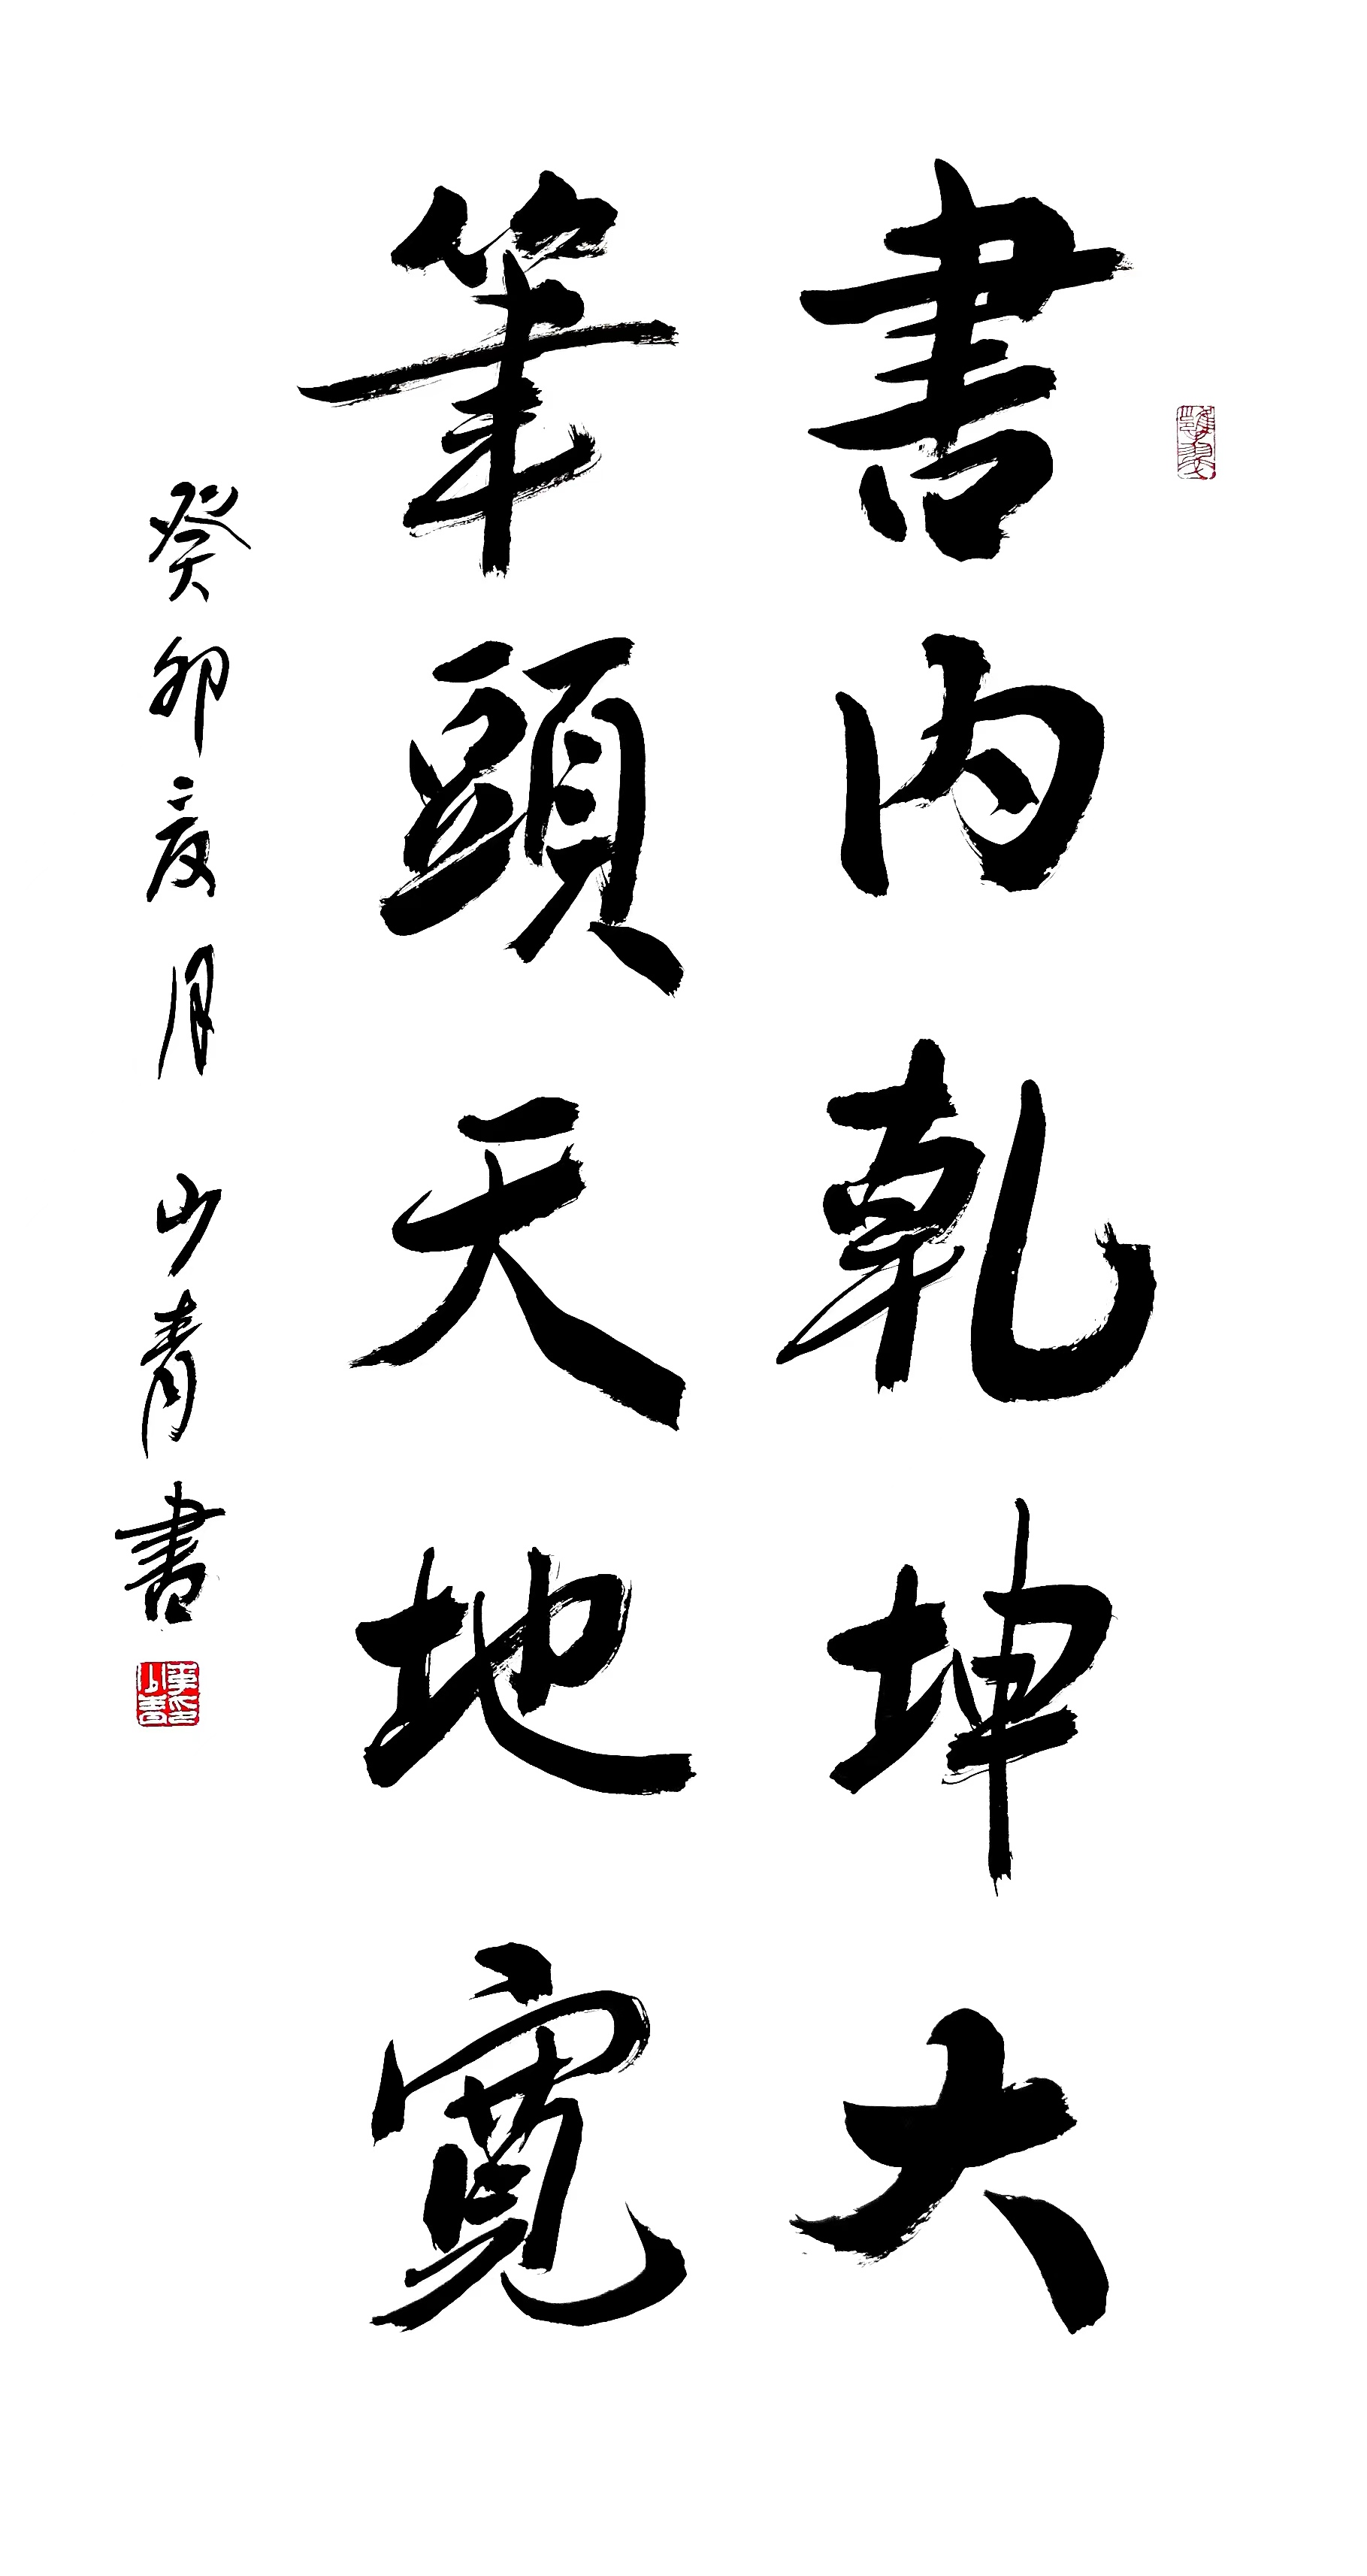 書内乾坤大
筆頭天地寬
癸卯夏月 山青書